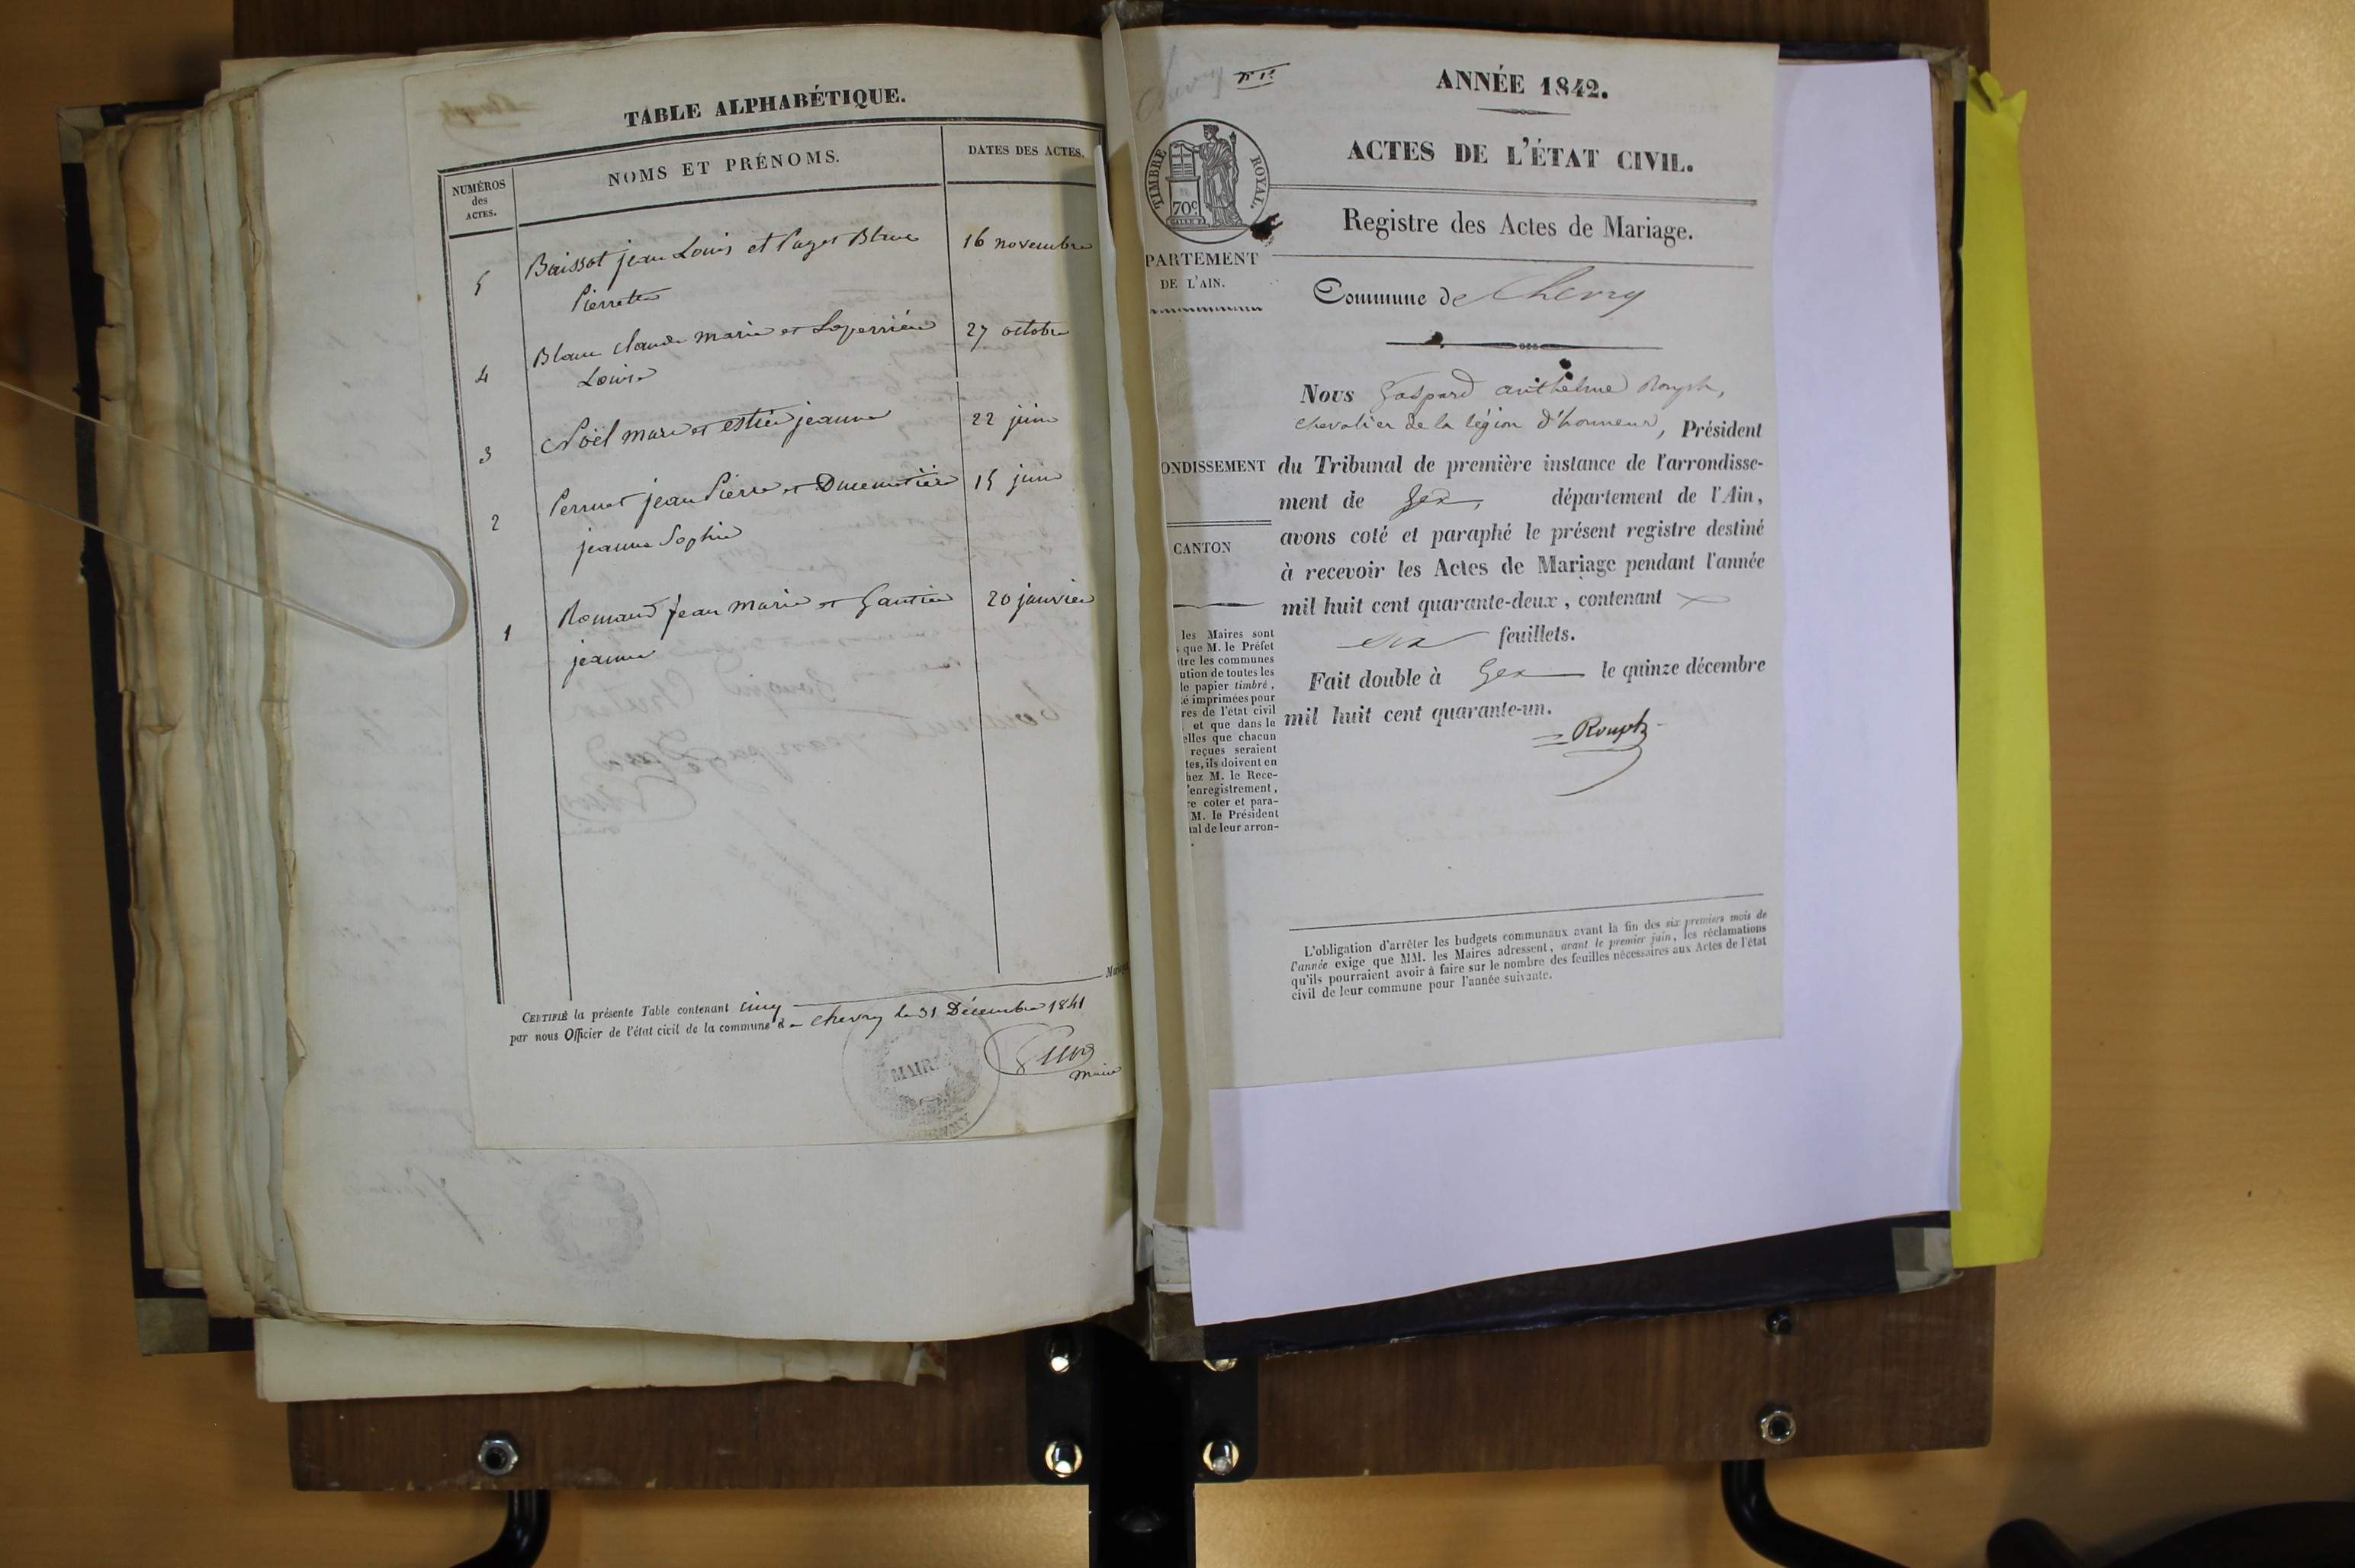 TABLE ALPHABÉTIQUE.
NUMÉROS
des
ACTES.
NOMS ET PRÉNOMS.
DATES DES ACTES.
5 Baissot jean Louis et Pages Blanc 16 novembre
Pierrette
4 Blanc claude marie et Laperrière 27 octobre
Louise
3 Noël marc et estier jeanne 22 juin
2 Perruet jean Pierre et Ducimetière 15 juin
jeanne Sophie
1 Romand jean marie et Gautier 20 janvier
jeanne
CERTIFIÉ la présente Table contenant cinq
par nous Officier de l'état civil de la commune de chevry le 31 Décembre 1841
maire
MAIRIE
Chevry n° 1er
ANNÉE 1842.
ACTES DE L'ÉTAT CIVIL.
TIMBRE ROYAL.
70c
Registre des Actes de Mariage.
PARTEMENT
DE L'AIN.
Commune de Chevry
Nous Gaspard anthelme Rouph,
chevalier de la légion d'honneur, Président
ONDISSEMENT
du Tribunal de première instance de l'arrondisse-
ment de Gex, département de l'Ain,
avons coté et paraphé le présent registre destiné
CANTON
à recevoir les Actes de Mariage pendant l'année
mil huit cent quarante-deux, contenant
six feuillets.
Fait double à Gex le quinze décembre
mil huit cent quarante-un.
Rouph
les Maires sont
que M. le Préfet
tre les communes
ution de toutes les
le papier timbré,
é imprimées pour
res de l'état civil
et que dans le
elles que chacun
reçues seraient
tes, ils doivent en
hez M. le Rece-
'enregistrement,
re coter et para-
M. le Président
al de leur arron-
L'obligation d'arrêter les budgets communaux avant la fin des six premiers mois de
l'année exige que MM. les Maires adressent, avant le premier juin, les réclamations
qu'ils pourraient avoir à faire sur le nombre des feuilles nécessaires aux Actes de l'état
civil de leur commune pour l'année suivante.